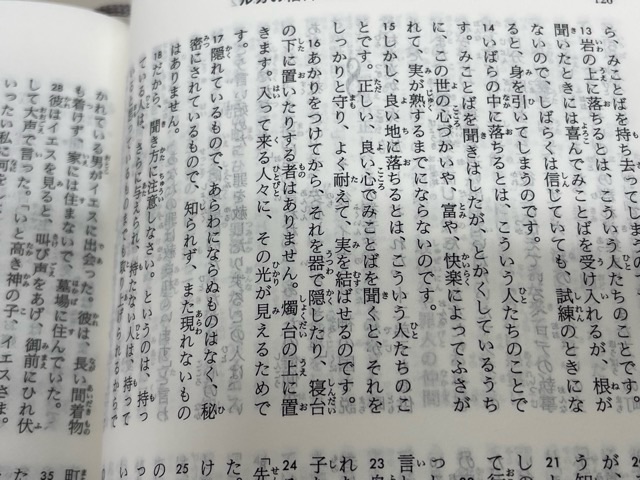 126
ら、みことばを持ち去ってしま
13岩の上に落ちるとは、こういう人たちのことです。
聞いたときには喜んでみことばを受け入れるが、根が
ないので、しばらくは信じていても、試練のときにな
ると、身を引いてしまうのです。
14いばらの中に落ちるとは、こういう人たちのことで
す。みことばを聞きはしたが、とかくしているうち
に、この世の心づかいや、富や、快楽によってふさが
れて、実が熟するまでにならないのです。
15しかし、良い地に落ちるとは、こういう人たちのこ
とです。正しい、良い心でみことばを聞くと、それを
しっかりと守り、よく耐えて、実を結ばせるのです。
16あかりをつけてから、それを器で隠したり、寝台
の下に置いたりする者はありません。燭台の上に置
きます。入って来る人々に、その光が見えるためで
す。
17隠れているもので、あらわにならぬものはなく、秘
密にされているもので、知られず、また現れないもの
はありません。
18だから、聞き方に注意しなさい。というのは、持っ
ている人は、さらに与えられ、持たない人は、持って
が、
しの
て行
21
う知
22
っと
言
23自
れた
子も
24
「先
た。
け
25
っ
て
町
35
かれている男がイエスに出会った。彼は、長い間着物
も着けず、家には住まないで、墓場に住んでいた。
28彼はイエスを見ると、叫び声をあげ、御前にひれ伏
して大声で言った。「いと高き神の子、イエスさま。
いったい私に何を